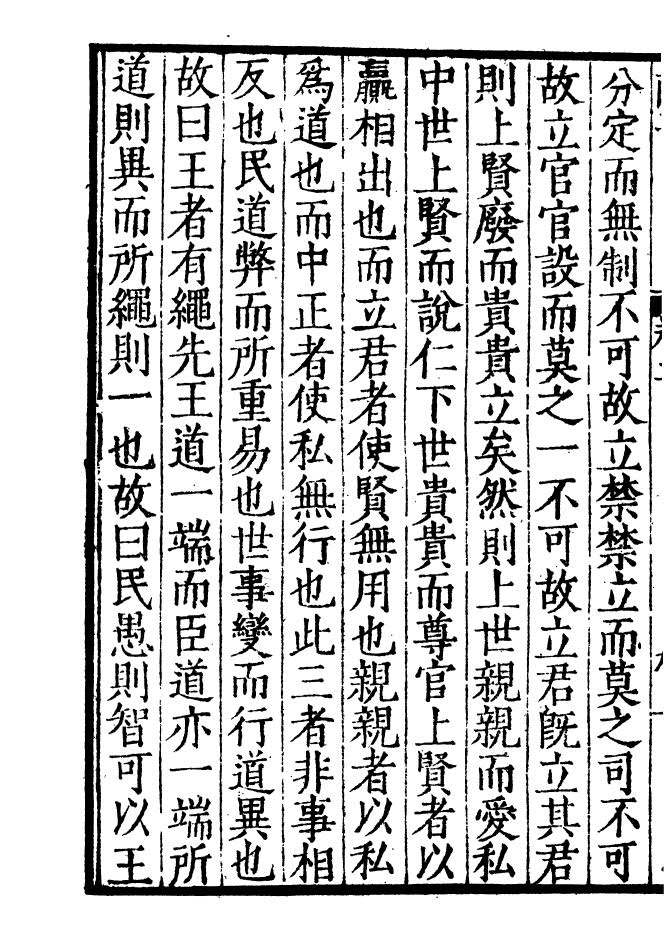 分定而無制不可故立禁禁立而莫之司不可
故立官官設而莫之一不可故立君既立其君
則上賢廢而貴貴立矣然則上世親親而愛私
中世上賢而說仁下世貴貴而尊官上賢者以
贏相出也而立君者使賢無用也親親者以私
爲道也而中正者使私無行也此三者非事相
反也民道弊而所重易也世事變而行道異也
故曰王者有繩先王道一端而臣道亦一端所
道則異而所繩則一也故曰民愚則智可以王